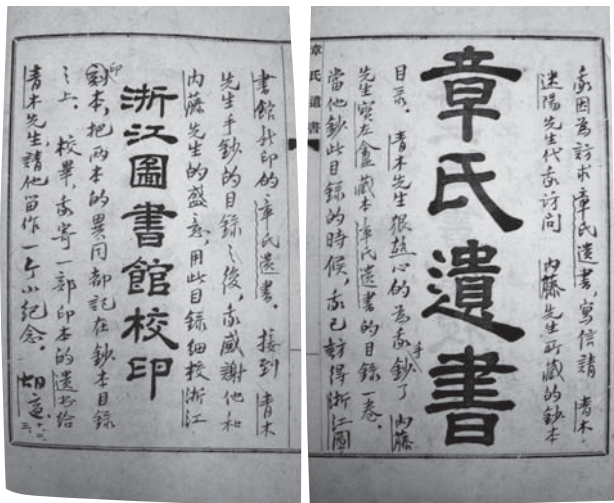 我因為訪求章氏遺書，寫信請 青木
迷陽先生代我訪问 内藤先生所藏的鈔本
章氏遺書
目录. 青木先生狠熱心的為我手鈔了 内藤
先生寶左盦藏本章氏遺書的目錄一卷.
當他鈔此目録的時候，我已訪得浙江圖
章氏遺書
書館新印的章氏遺書. 接到 青木
先生手鈔的目錄之後，我感謝他和
内藤先生的盛意，用此目錄細校浙江
浙江圖書館校印
印
刻本，把两本的異同都記在鈔本目錄
之上. 校畢，我寄一部印本的遺書給
青木先生，請他留作一个小紀念.
胡適